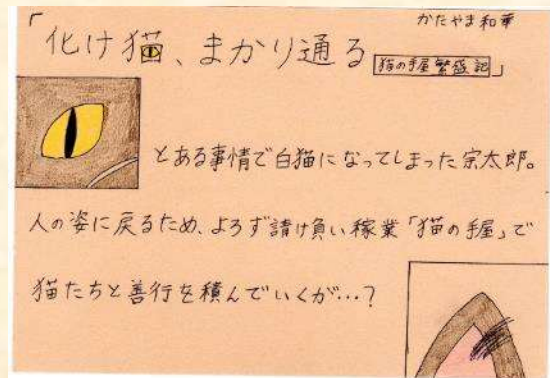 かたやま和華
「化け猫、まかり通る 猫の手屋繁盛記」
とある事情で白猫になってしまった宗太郎。
人の姿に戻るため、よろず請け負い稼業「猫の手屋」で
猫たちと善行を積んでいくが…?